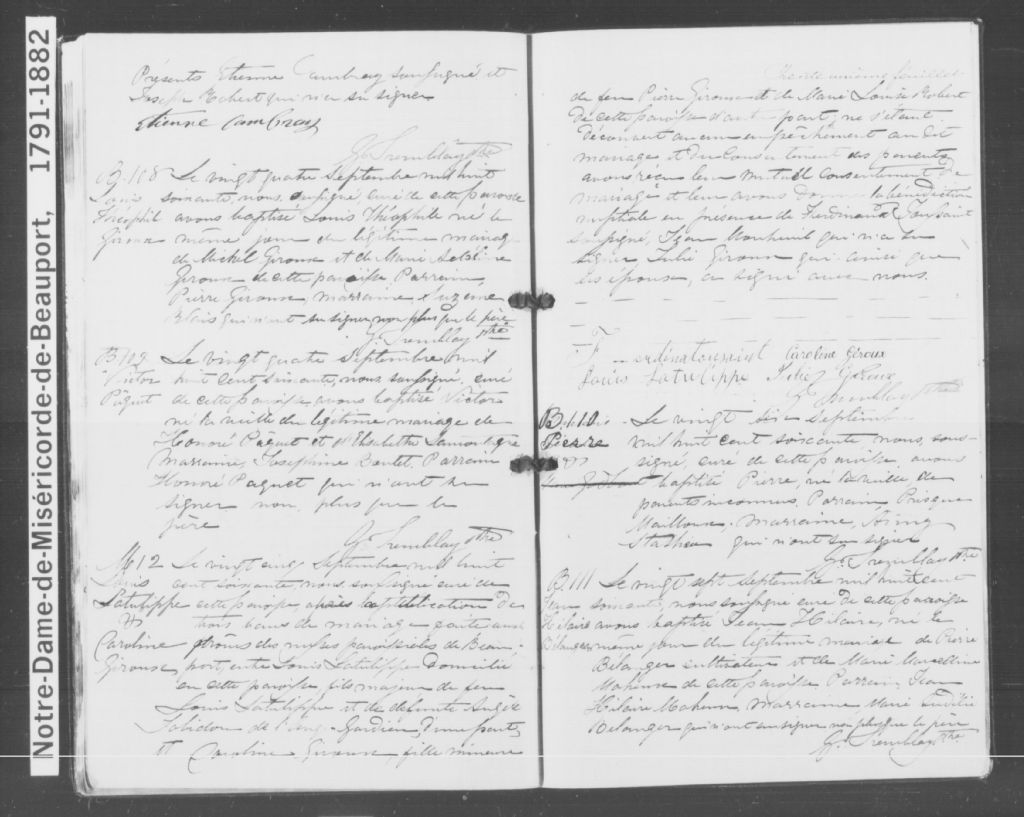 Notre-Dame-de-Miséricorde-de-Beauport, 1791-1882
Présents Etienne Cambray soussigné et
Joseph Robert qui n'a su signer
Etienne Cambray
G. Tremblay Ptre
B. 108 Le vingt quatre Septembre mil huit
Louis soixante, nous, soussigné, curé de cette paroisse
Théophil avons baptisé Louis Théophile né le
Giroux même jour du légitime mariage
de Michel Giroux et de Marie
Giroux de cette paroisse Parrain,
Pierre Giroux, marraine Suzanne
Blais qui n'ont su signer non plus que le père
G. Tremblay Ptre
B. 109 Le vingt quatre Septembre mil
Victor huit cent soixante, nous soussigné, curé
Paquet de cette paroisse avons baptisé Victor
né la veille du légitime mariage de
Honoré Paquet et d'Elisabeth Lamontagne
Marraine, Josephine Boutet. Parrain
Honoré Paquet qui n'ont su
signer non plus que le
père
G. Tremblay Ptre
M 12 Le vingt cinq Septembre mil huit
Louis cent soixante, nous soussigné curé de
Latulippe cette paroisse après la publication de
& trois bans de mariage faite aux
Caroline prônes des messes paroissiales de Beau-
Giroux, port, entre Louis Latulippe domicilié
en cette paroisse, fils majeur de feu
Louis Latulippe et de défunte
de l'Ange-Gardien d'une part,
et Caroline Giroux, fille mineure
feuillet
de feu Pierre Giroux et de Marie Louise Robert
de cette paroisse d'autre part; ne s'étant
découvert aucun empêchement au dit
mariage et du consentement des parents
avons reçu leur mutuel consentement de
mariage et leur avons donné la bénédiction
nuptiale en présence de Ferdinand Toussaint
soussigné, Montreuil qui n'a su
signer Julie Giroux qui ainsi que
l'épouse, a signé avec nous.
F erdinatousaint Caroline Giroux
Louis Latulippe Julie Giroux
G. Tremblay Ptre
B. 110 Le vingt six Septembre
Pierre mil huit cent soixante nous, sous-
signé, curé de cette paroisse avons
baptisé Pierre, né la veille de
parents inconnus. Parrain, Prisque
Mailloux. Marraine,
qui n'ont su signer
G. Tremblay Ptre
B. 111 Le vingt sept Septembre mil huit cent
Jean soixante, nous soussigné curé de cette paroisse
Hilaire avons baptisé Jean Hilaire, né le
Bélanger même jour du légitime mariage de Pierre
Bélanger cultivateur et de Marie Marcelline
Maheux de cette paroisse. Parrain Jean
Hilaire Maheux, Marraine Marie
Bélanger qui n'ont su signer non plus que le père
G. Tremblay Ptre